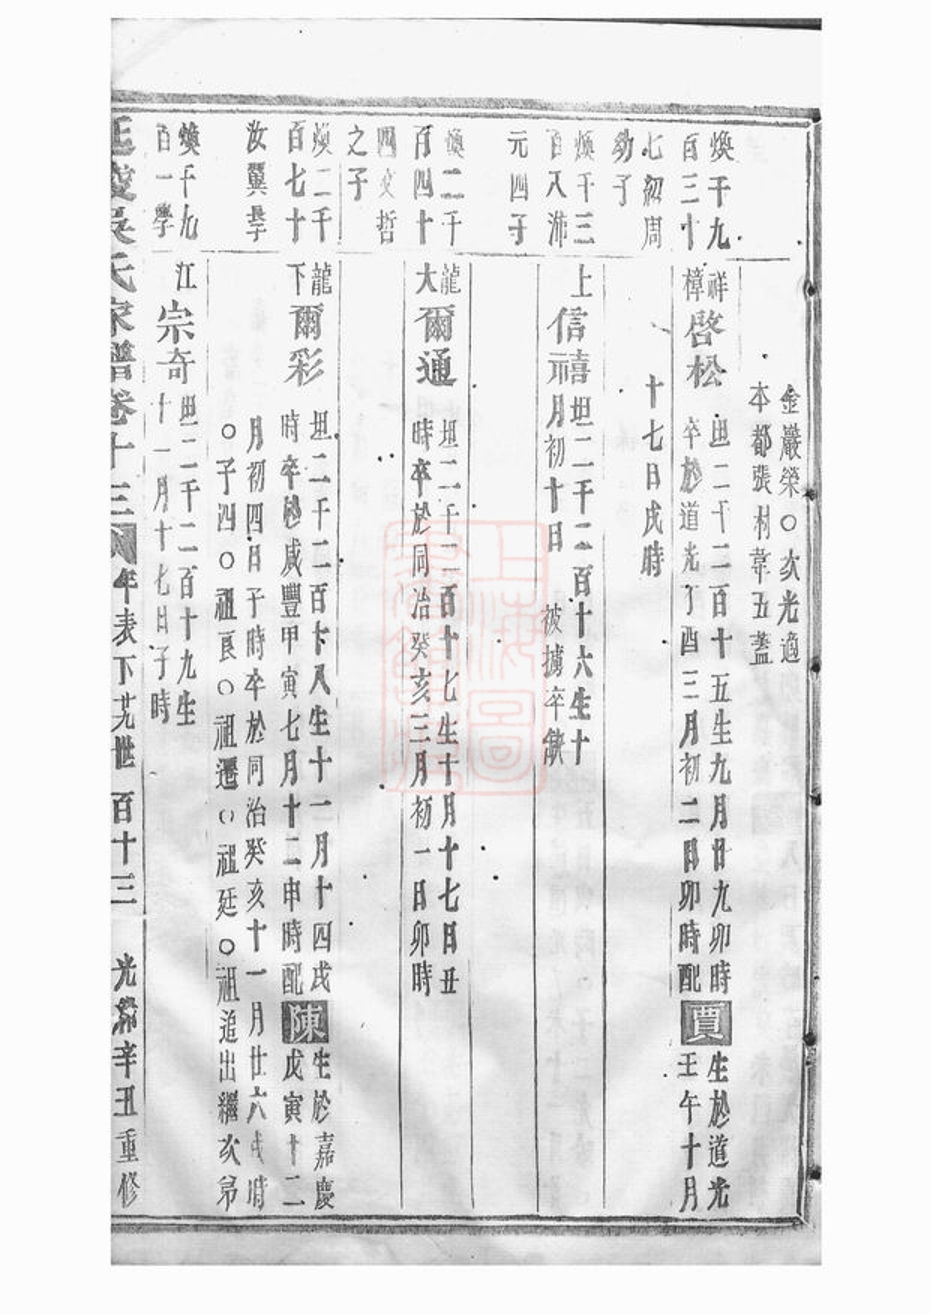 金巖榮○次光適
本都張村韋五蓋
煥千九
百三十
七紹周
幼子
祥樟
啓松
出二千二百十五生九月廿九卯時
卒於道光丁酉三月初二日卯時配
賈
生於道光
壬午十月
十七日戌時
煥千三
百八沛
元四子
上
信禧
坦二千二百十六生十
月初十日
被擄卒缺
煥二千
百四十
四文哲
之子
龍大
爾通
坦二千二百十七生十月十七日丑
時卒於同治癸亥三月初一日卯時
煥二千
百七十
汝翼長
子
龍下
爾彩
坦二千二百十八生十二月十四戌
時卒於咸豐甲寅七月十二申時配
陳
生於嘉慶
戊寅十二
月初四日子時卒於同治癸亥十一月廿六戌時
○子四○祖良○祖遷○祖廷○祖追出繼次弟
煥千九
百一學
江
宗奇
坦二千二百十九生
十一月十七日子時
延陵吳氏家譜卷十三
年表下 九世 百十三 光緒辛丑重修
上海圖書館藏